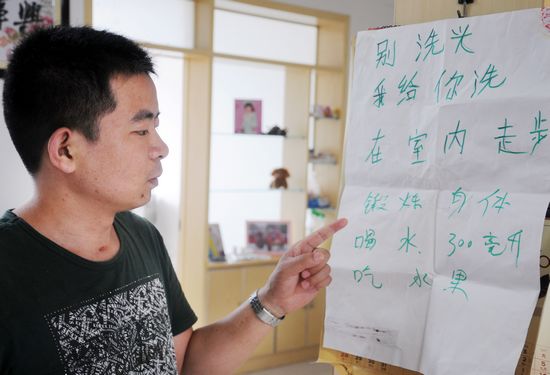 别洗头
我给你洗
在室内走步
锻炼身体
喝水300毫升
吃水果